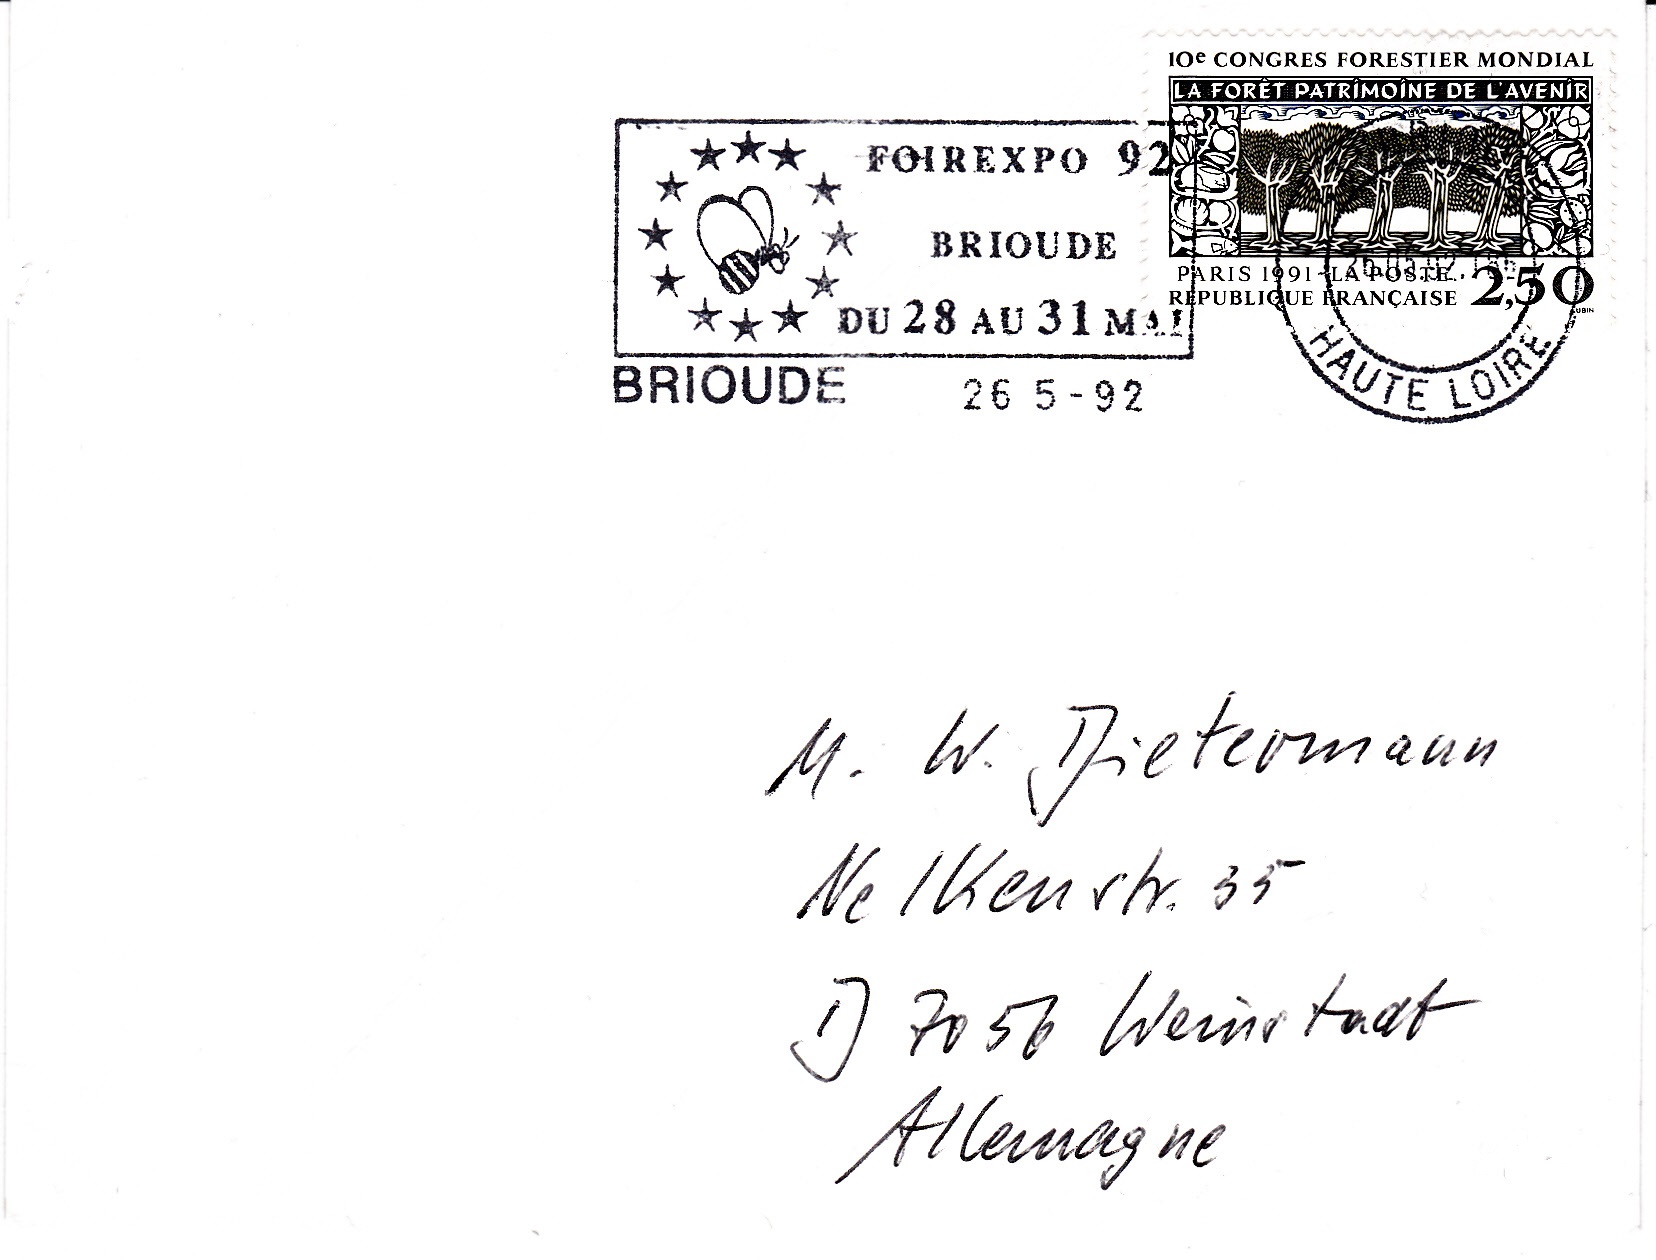 10e CONGRES FORESTIER MONDIAL
LA FORÊT PATRIMOINE DE L'AVENIR
PARIS 1991-LA POSTE
REPUBLIQUE FRANÇAISE 2,50
FOIREXPO 92
BRIOUDE
DU 28 AU 31 MAI
BRIOUDE 26 5-92
HAUTE LOIRE
M. W. Dietermann
Nelkenstr. 35
D 7056 Weinstadt
Allemagne